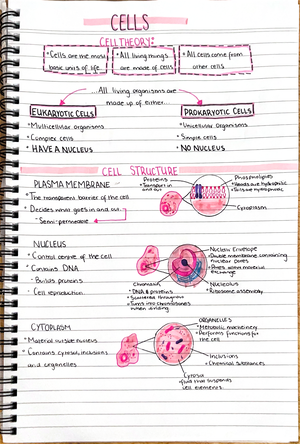 CELLS
CELL THEORY:
• Cells are the most basic units of life.
• All living things are made of cells
• All cells come from other cells
...All living organisms are
made up of either...
EUKARYOTIC CELLS
• Multicellular organisms
• Complex cells
• HAVE A NUCLEUS
PROKARYOTIC CELLS
• Unicellular Organisms
• Simple cells
• NO NUCLEUS
CELL STRUCTURE
PLASMA MEMBRANE
• The transparent barrier of the cell
• Decides what goes in and out.
• Semi-permeable
Proteins
• Transport in
and out
Phospholipids
• Heads are hydrophilic
• Tails are hydrophobic
Cytoplasm
NUCLEUS
• Control centre of the cell
• Contains DNA
• Builds proteins
• Cell reproduction
Chromatin
• DNA & proteins
• Scattered throughout
• Turns into chromosomes
when dividing
Nuclear Envelope
• Double membrane containing
nuclear pores
material
exchange
Nucleolus
• Ribosome assembly
CYTOPLASM
• Material outside nucleus
• Contains cytosol, inclusions
and organelles
ORGANELLES
• Metabolic machinery
• Performs functions for
the cell
Inclusions
• Chemical substances
Cytosol
fluid that suspends
cell elements